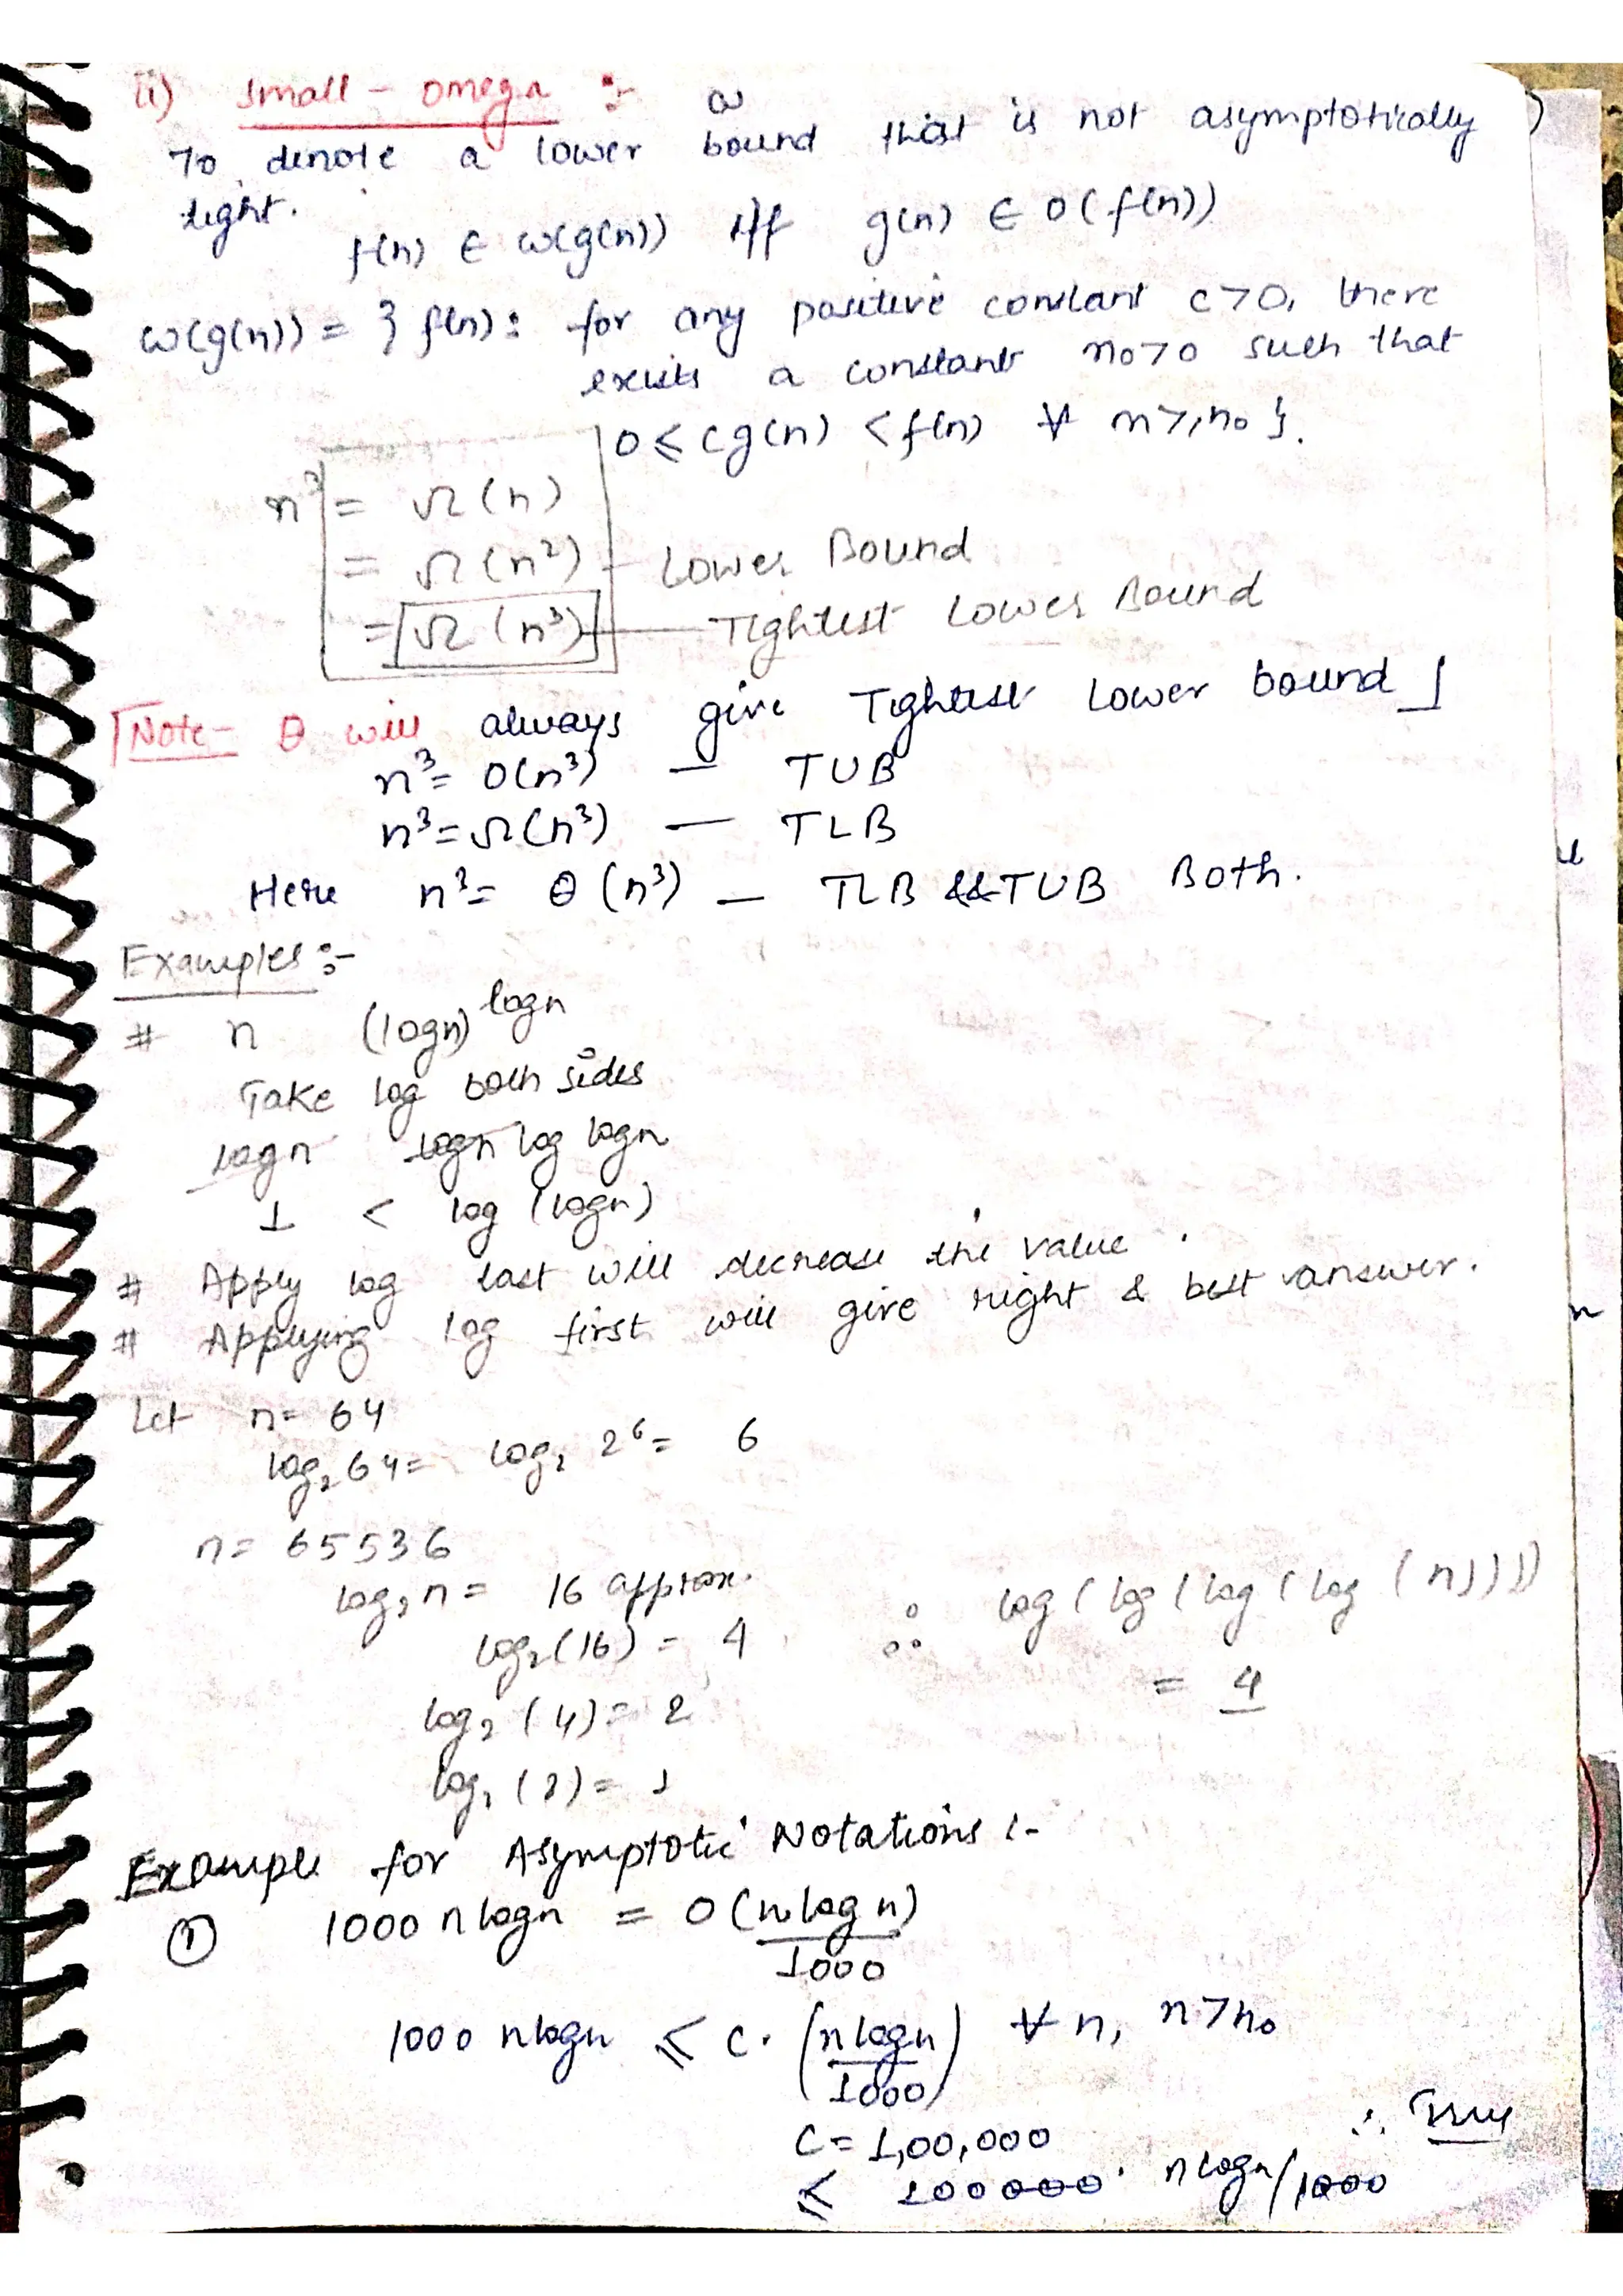 ii) Small - omega :- ω
To denote a lower bound that is not asymptotically
tight.
f(n) ∈ ω(g(n)) iff g(n) ∈ o(f(n))
ω(g(n)) = } f(n): for any positive constant c>0, there
exists a constant n₀>0 such that
0 ≤ cg(n) < f(n) ∀ n≥n₀ }.
n³ = Ω(n)
= Ω(n²) - Lower Bound
= Ω(n³) - Tightest Lower Bound
Note- θ will always give Tightest Lower bound
n³ = O(n³) - TUB
n³ = Ω(n³) - TLB
Here n³ = θ(n³) - TLB && TUB Both.
Examples :-
# n (logn)^logn
Take log both sides
logn logn log logn
1 < log (logn)
# Apply log last will decrease the value.
# Applying log first will give right & best answer.
Let n = 64
log₂64 = log₂ 2⁶ = 6
n = 65536
log₂n = 16 approx.
log₂(16) = 4 ∴ log(log(log(log(n))))
= 4
log₂(4) = 2
log₂(2) = 1
Example for Asymptotic Notations :-
① 1000 nlogn = O(nlogn/1000)
1000 nlogn ≤ c. (nlogn/1000) ∀ n, n>n₀
C = 1,00,000 ∴ True
≤ 100000. nlogn/1000